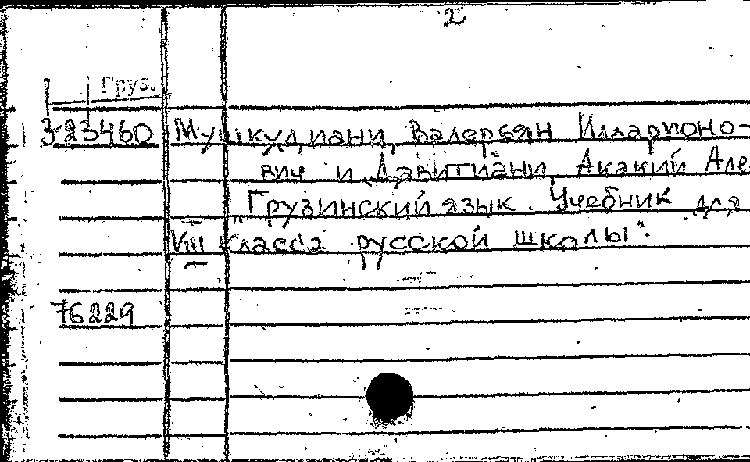 2
Груз.
3-23460 Мушкудиани, Валерьян Илларионо-
вич и Давитиани, Акакий Але
„Грузинский язык. Учебник для
VIII класса русской школы".
76229